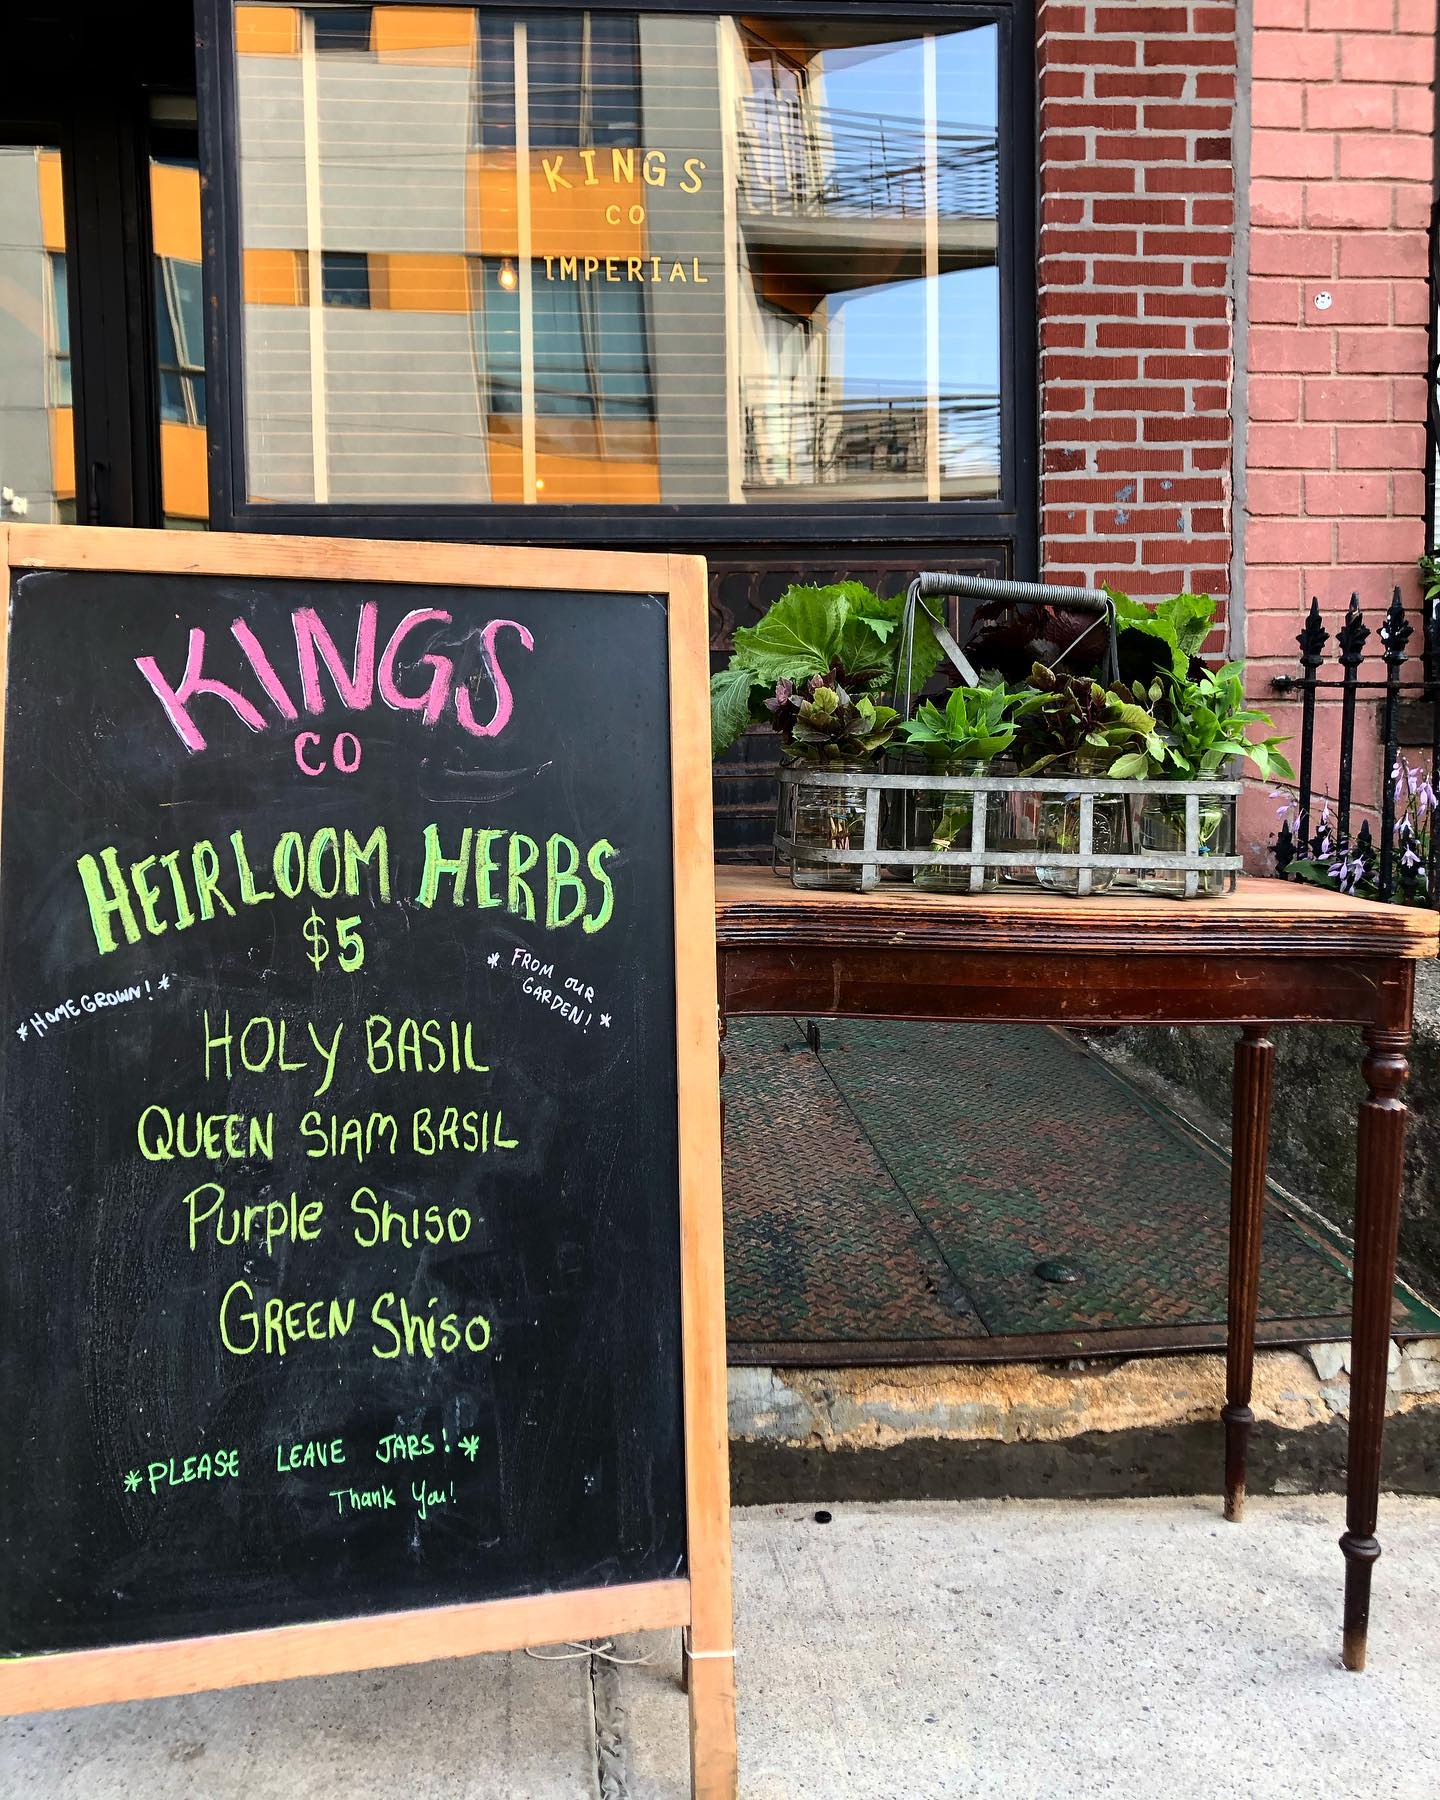 KINGS
CO
IMPERIAL
KINGS
CO
HEIRLOOM HERBS
$5
*HOMEGROWN!*
*FROM OUR
GARDEN!*
HOLY BASIL
QUEEN SIAM BASIL
Purple Shiso
GREEN Shiso
*PLEASE LEAVE JARS!*
Thank You!